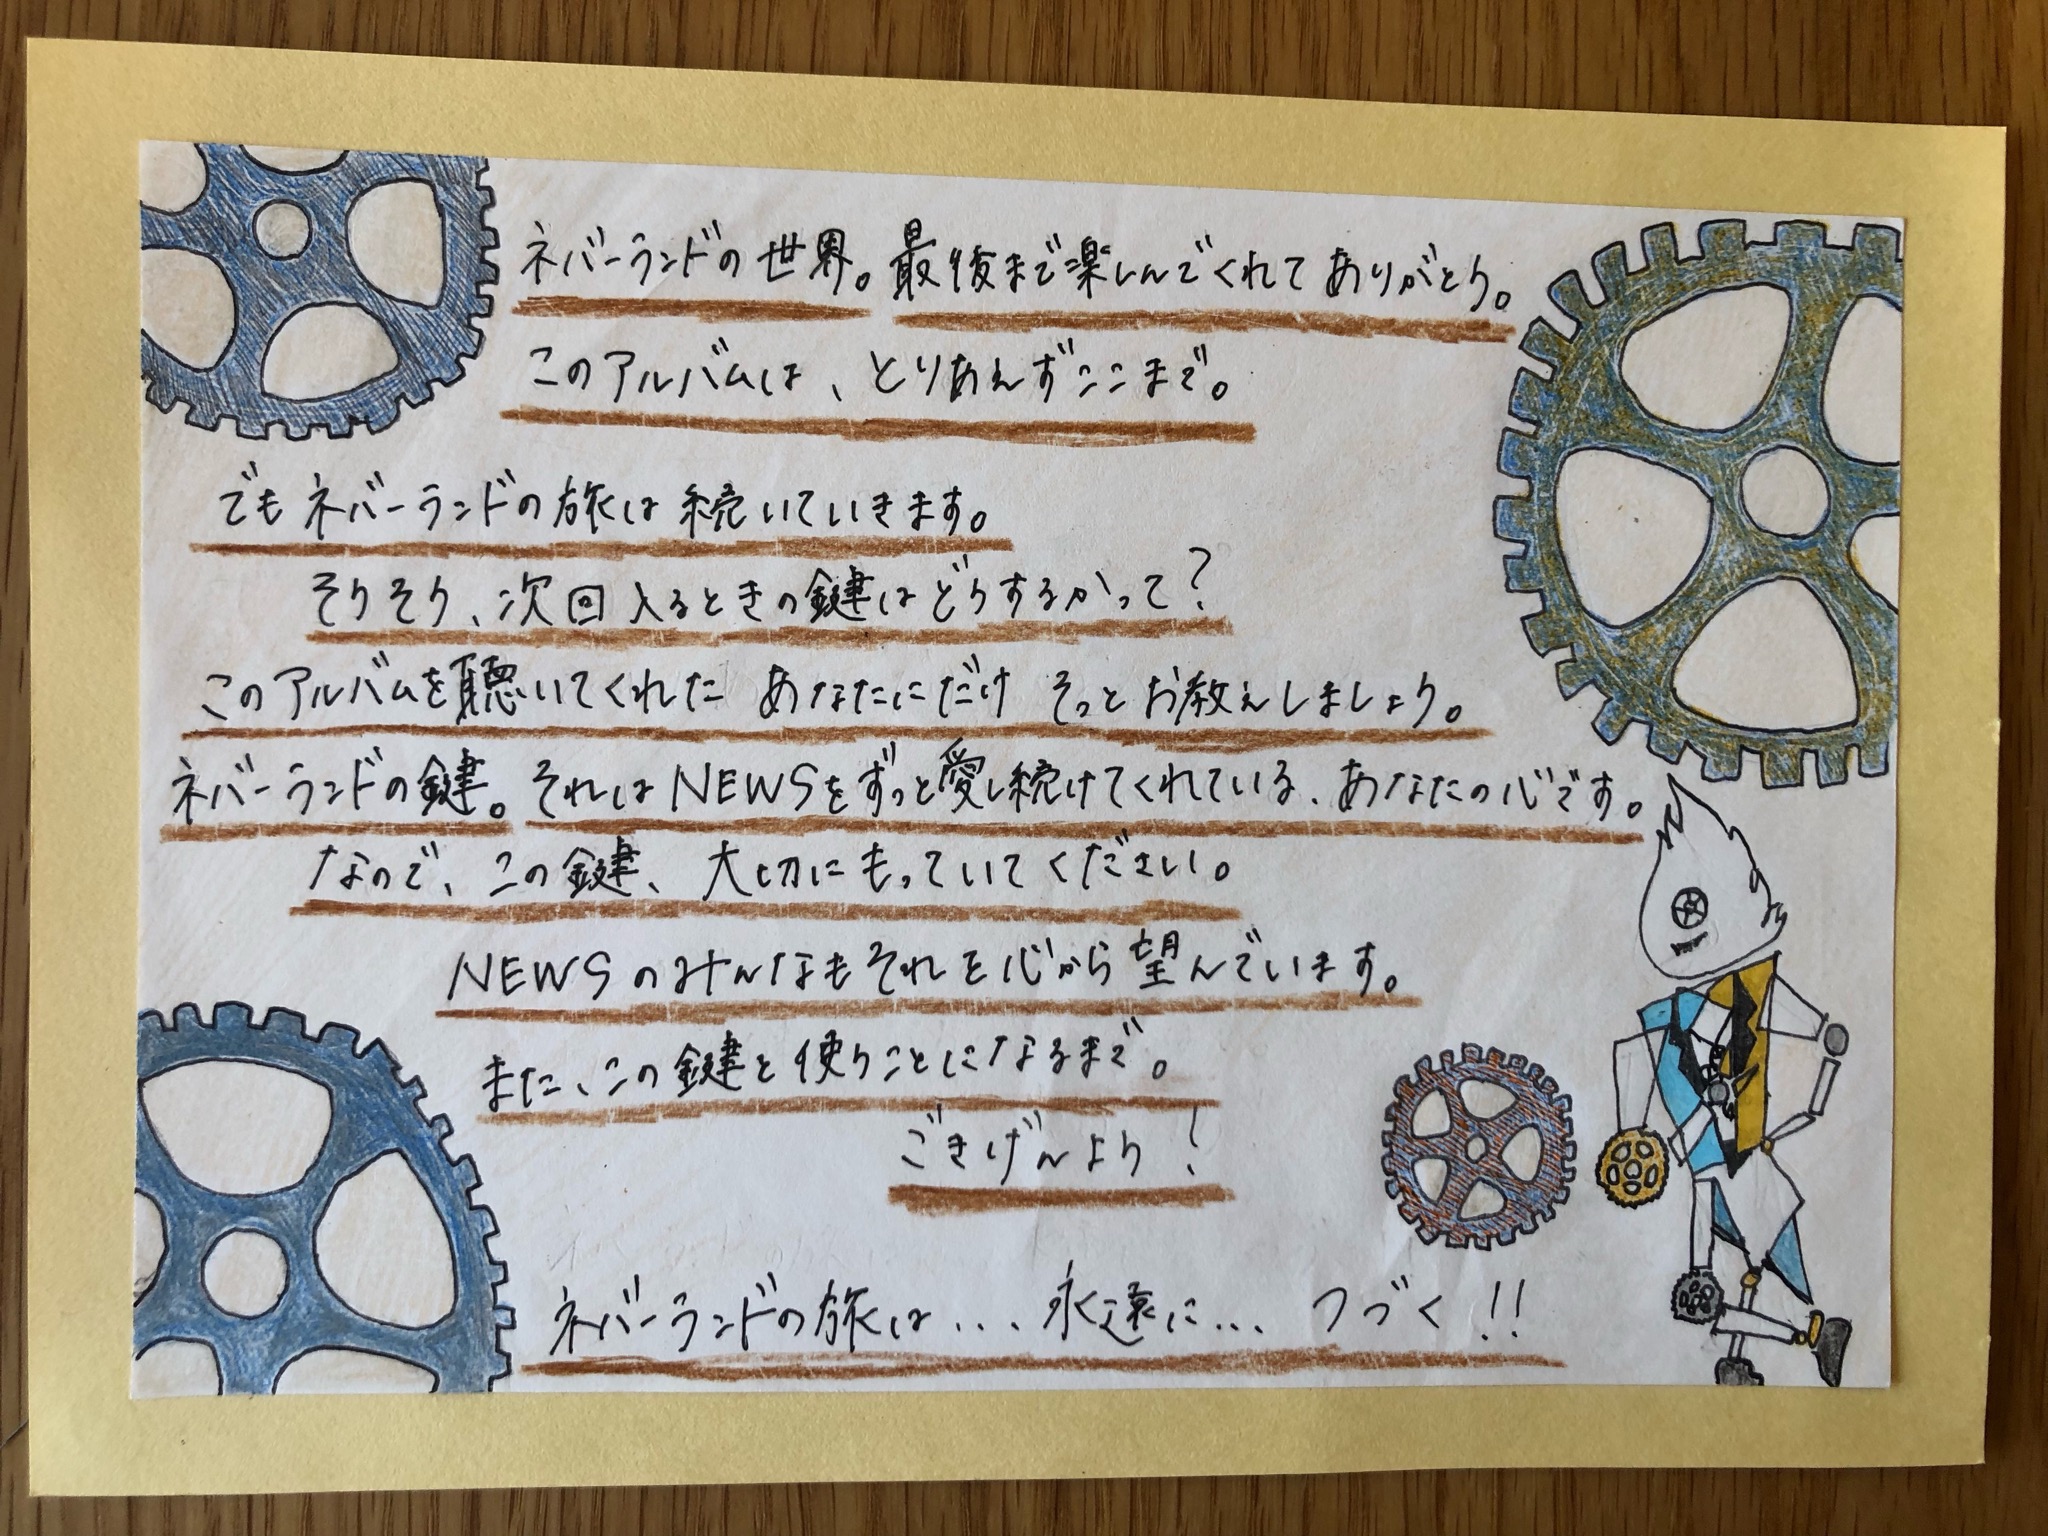 ネバーランドの世界。最後まで楽しんでくれてありがとう。
このアルバムは、とりあえずここまで。
でもネバーランドの旅は続いていきます。
そうそう、次回入るときの鍵はどうするかって?
このアルバムを聴いてくれた あなたにだけ そっとお教えしましょう。
ネバーランドの鍵。それはNEWSをずっと愛し続けてくれている、あなたの心です。
なので、この鍵、大切にもっていてください。
NEWSのみんなもそれを心から望んでいます。
また、この鍵を使うことになるまで。
ごきげんよう!
ネバーランドの旅は... 永遠に... つづく!!